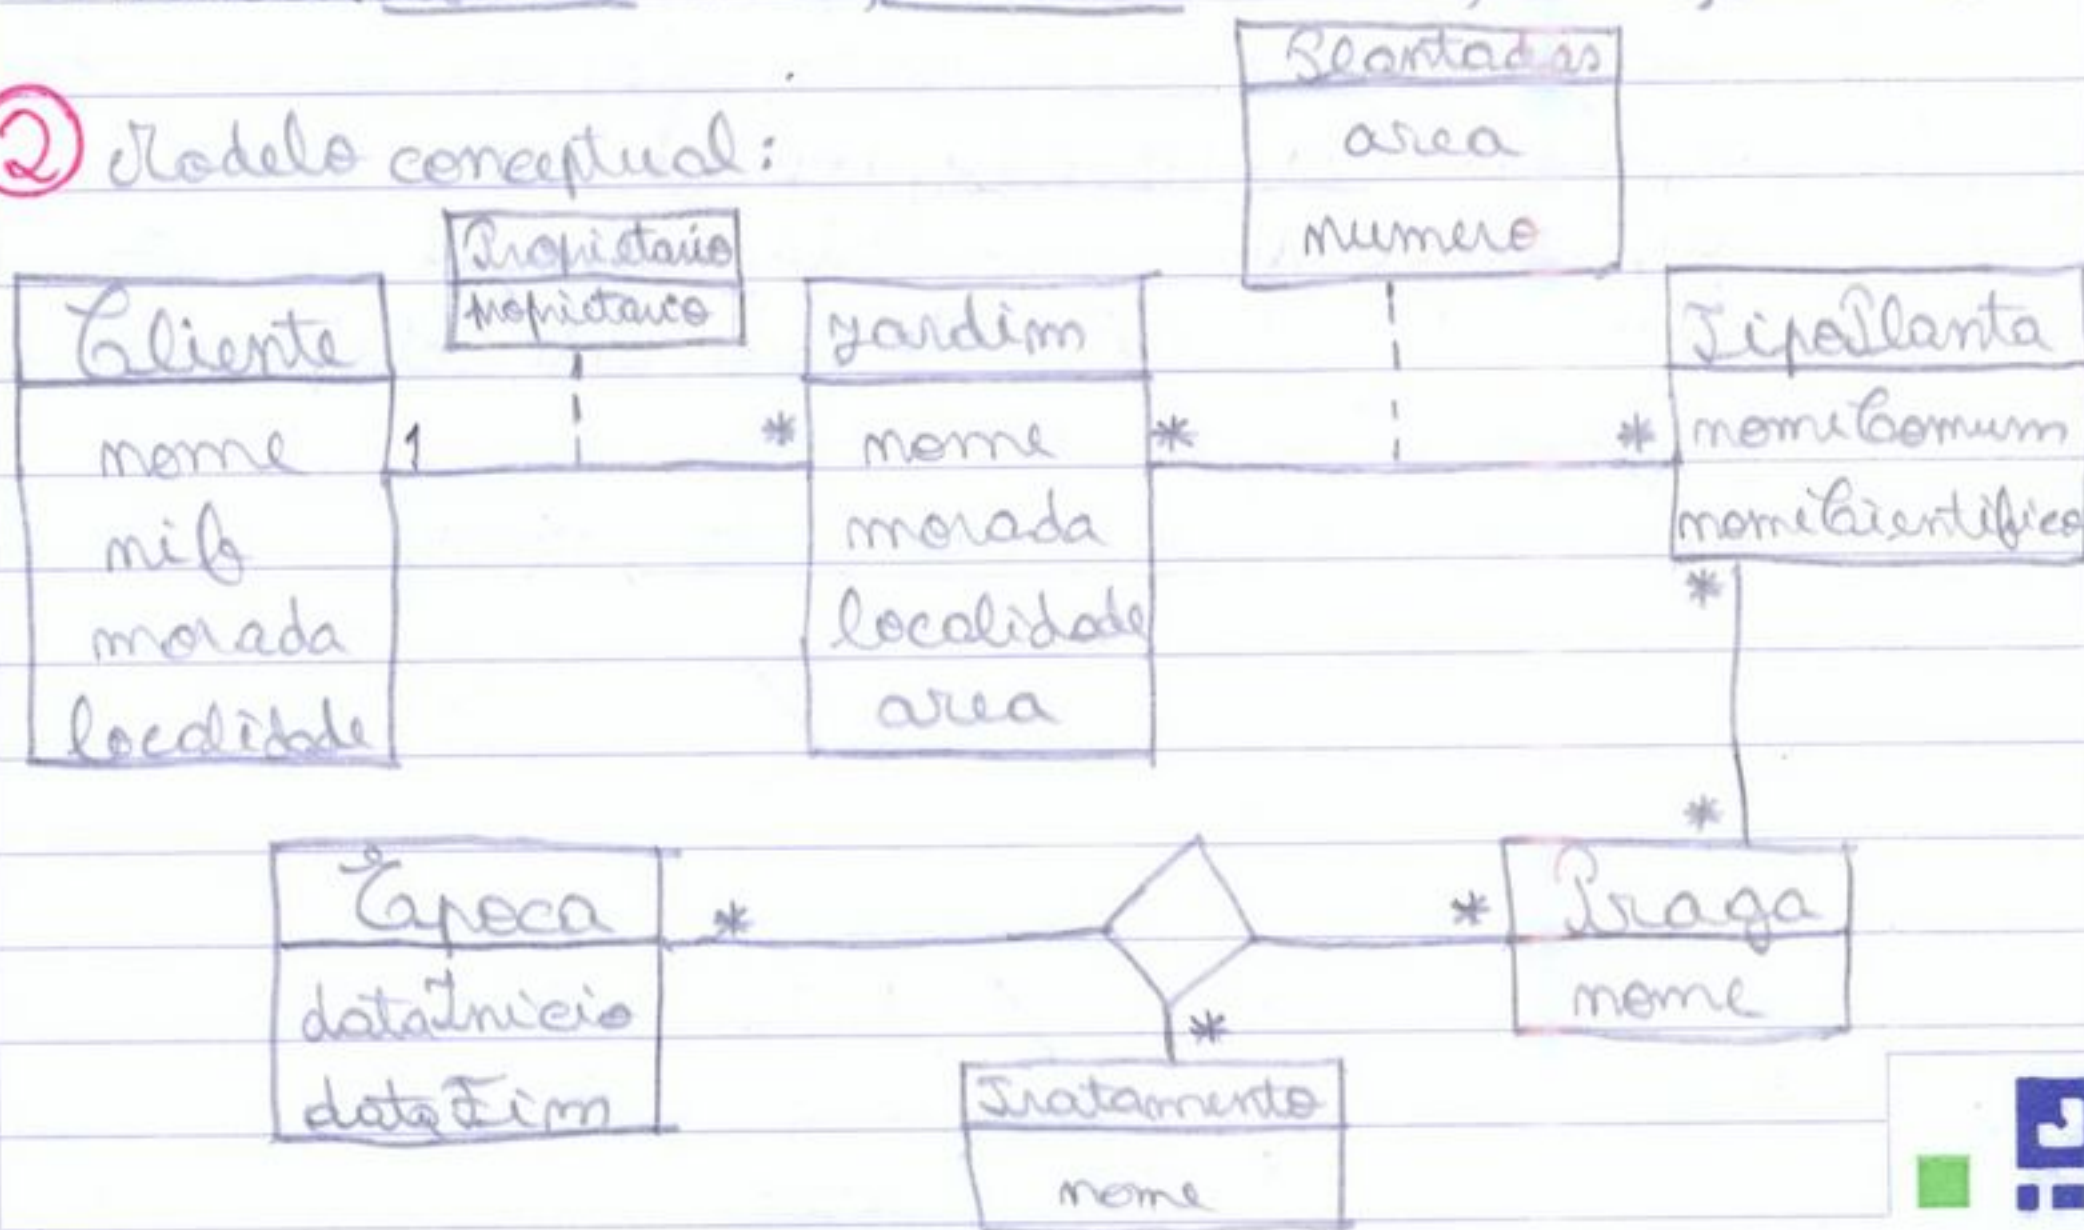 2 Modelo conceptual:
Plantadas
area
numero
Propietario
propietario
Cliente
nome
nif
morada
localidade
1
*
Jardim
nome
morada
localidade
area
*
*
TipoPlanta
nomeComum
nomeCientifico
*
*
Época
dataInicio
dataFim
*
*
*
Praga
nome
Tratamento
nome